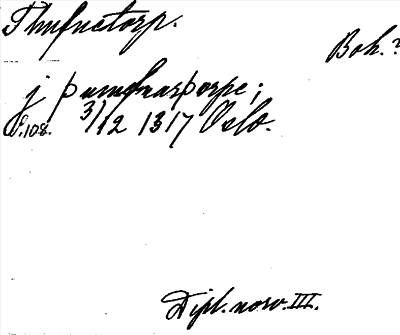 Thumfnetorp.
Boh.?
j þumfnæþorpe;
S. 108. 3/12 1317 Oslo.
Dipl. norv. III.